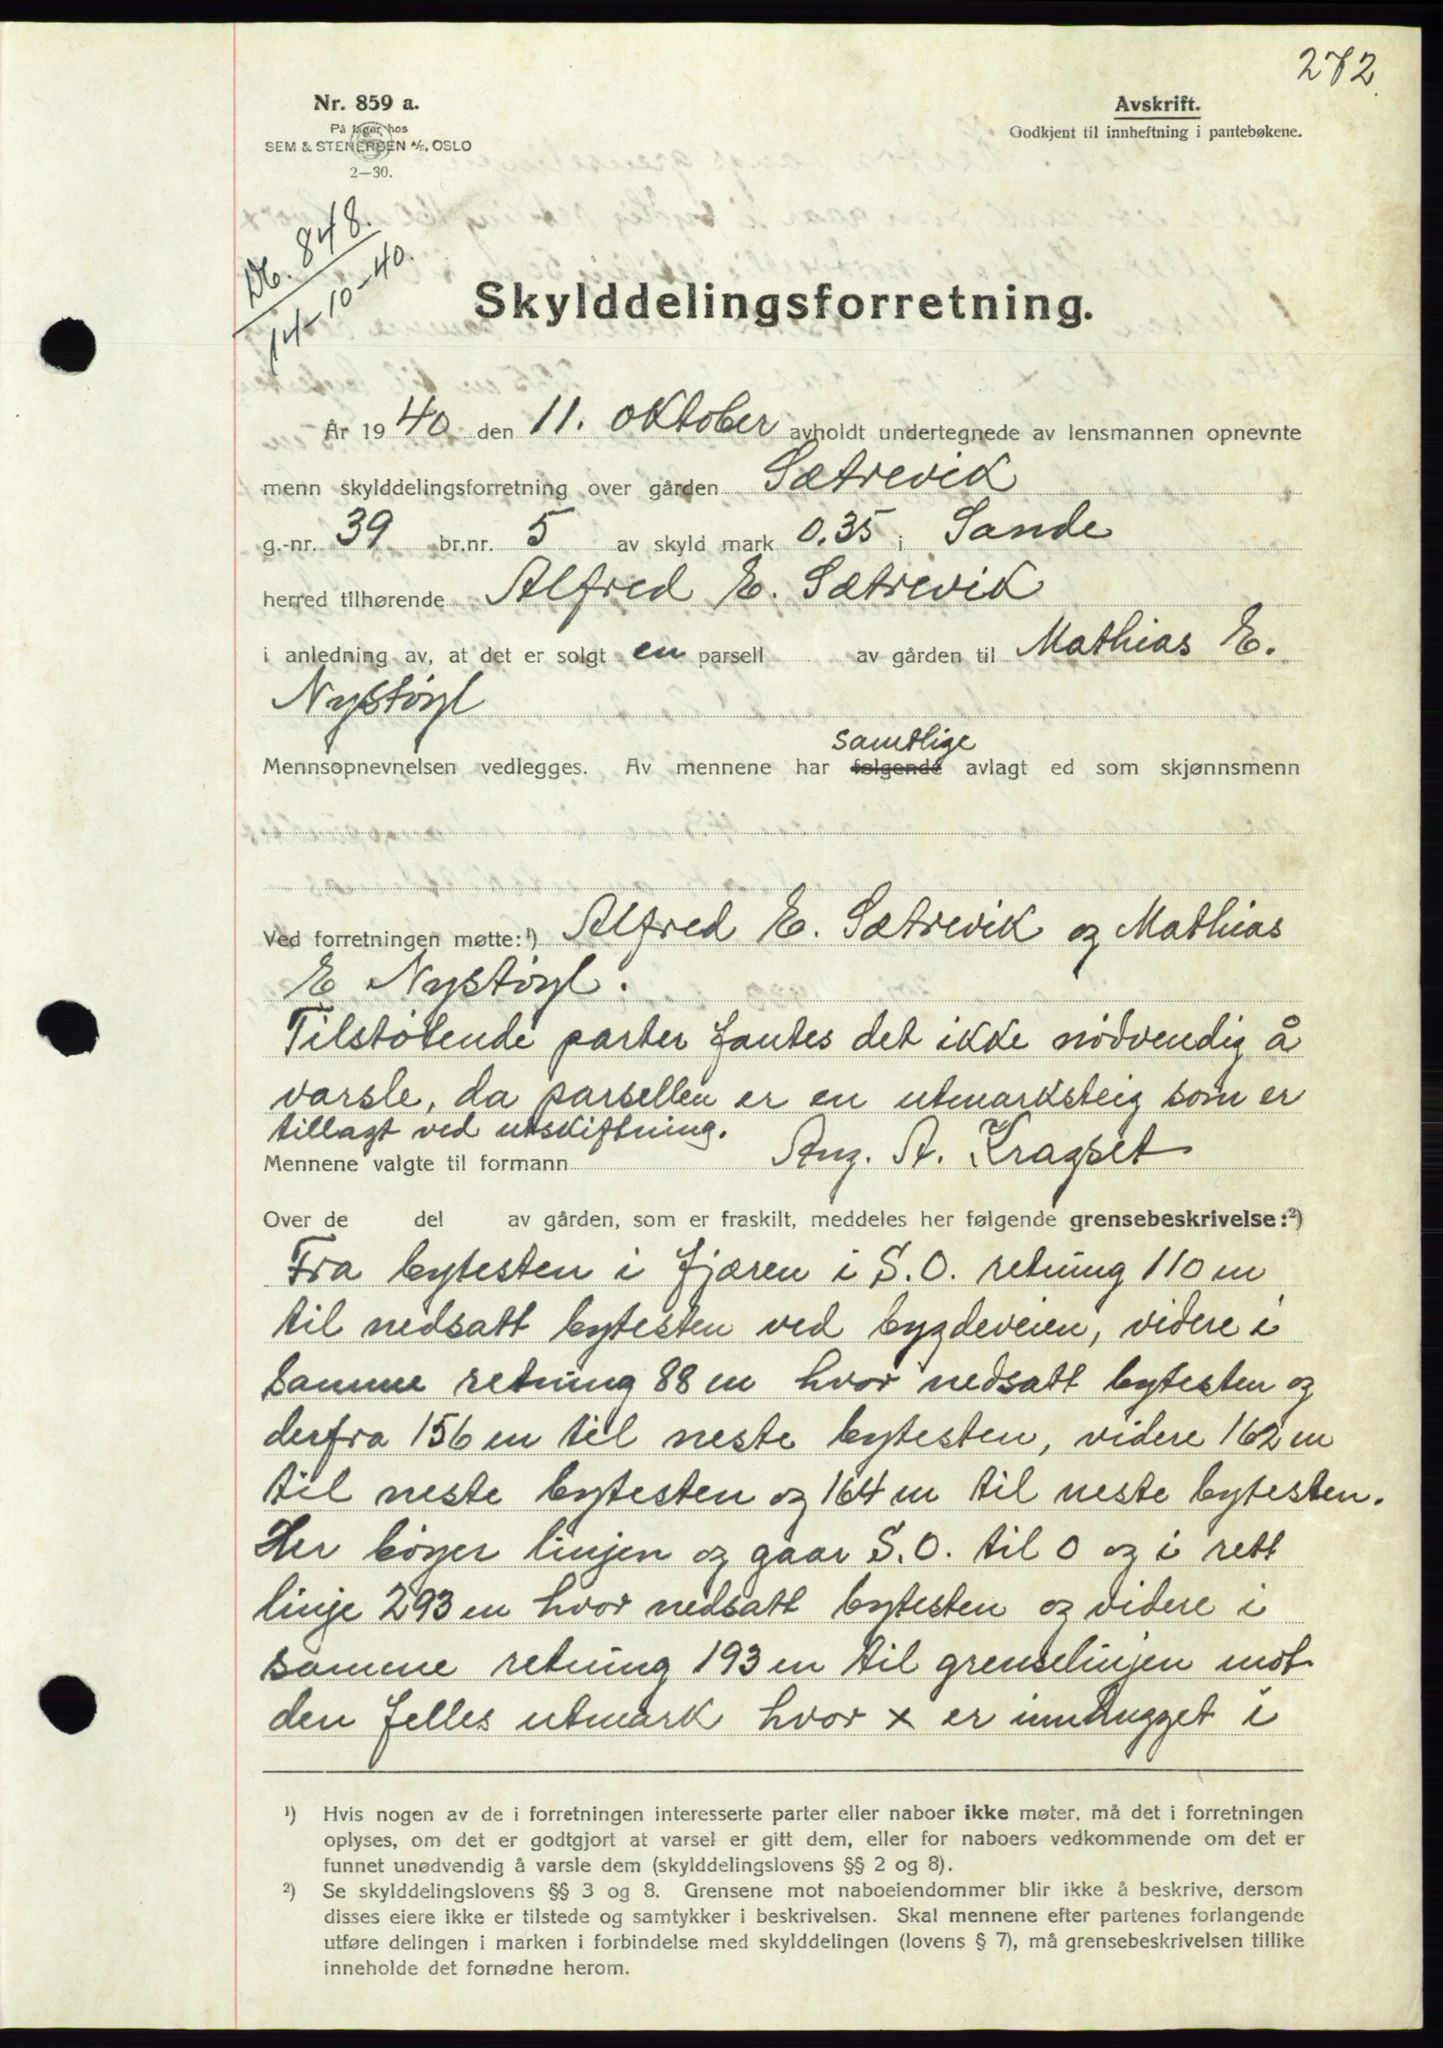 272.
Nr. 859 a.
På lager hos
SEM & STENERSEN A/S, OSLO
2—30.
Avskrift.
Godkjent til innheftning i pantebøkene.
Db. 848.
14-10-40.
Skylddelingsforretning.
År 1940 den 11. oktober avholdt undertegnede av lensmannen opnevnte
menn skylddelingsforretning over gården Sætrevik
g.-nr. 39 br.nr. 5 av skyld mark 0.35 i Sande
herred tilhørende Alfred E. Sætrevik
i anledning av, at det er solgt en parsell av gården til Mathias E.
Nystøyl
samtlige
Mennsopnevnelsen vedlegges. Av mennene har følgende avlagt ed som skjønnsmenn
Ved forretningen møtte:¹) Alfred E. Sætrevik og Mathias
E Nystøyl.
Tilstøtende parter fantes det ikke nødvendig å
varsle, da parsellen er en utmarksteig som er
tillagt ved utskiftning.
Mennene valgte til formann Ang. A. Kragset
Over de del av gården, som er fraskilt, meddeles her følgende grensebeskrivelse:²)
Fra bytesten i fjæren i S.O. retning 110 m
til nedsatt bytesten ved bygdeveien, videre i
samme retning 88 m hvor nedsatt bytesten og
derfra 156 m til neste bytesten, videre 162 m
til neste bytesten og 164 m til neste bytesten.
Her bøyer linjen og gaar S.O. til O og i rett
linje 293 m hvor nedsatt bytesten og videre i
samme retning 193 m til grenselinjen mot
den felles utmark hvor x er innhugget i
¹) Hvis nogen av de i forretningen interesserte parter eller naboer ikke møter, må det i forretningen
oplyses, om det er godtgjort at varsel er gitt dem, eller for naboers vedkommende om det er
funnet unødvendig å varsle dem (skylddelingslovens §§ 2 og 8).
²) Se skylddelingslovens §§ 3 og 8. Grensene mot naboeiendommer blir ikke å beskrive, dersom
disses eiere ikke er tilstede og samtykker i beskrivelsen. Skal mennene efter partenes forlangende
utføre delingen i marken i forbindelse med skylddelingen (lovens § 7), må grensebeskrivelsen tillike
inneholde det fornødne herom.